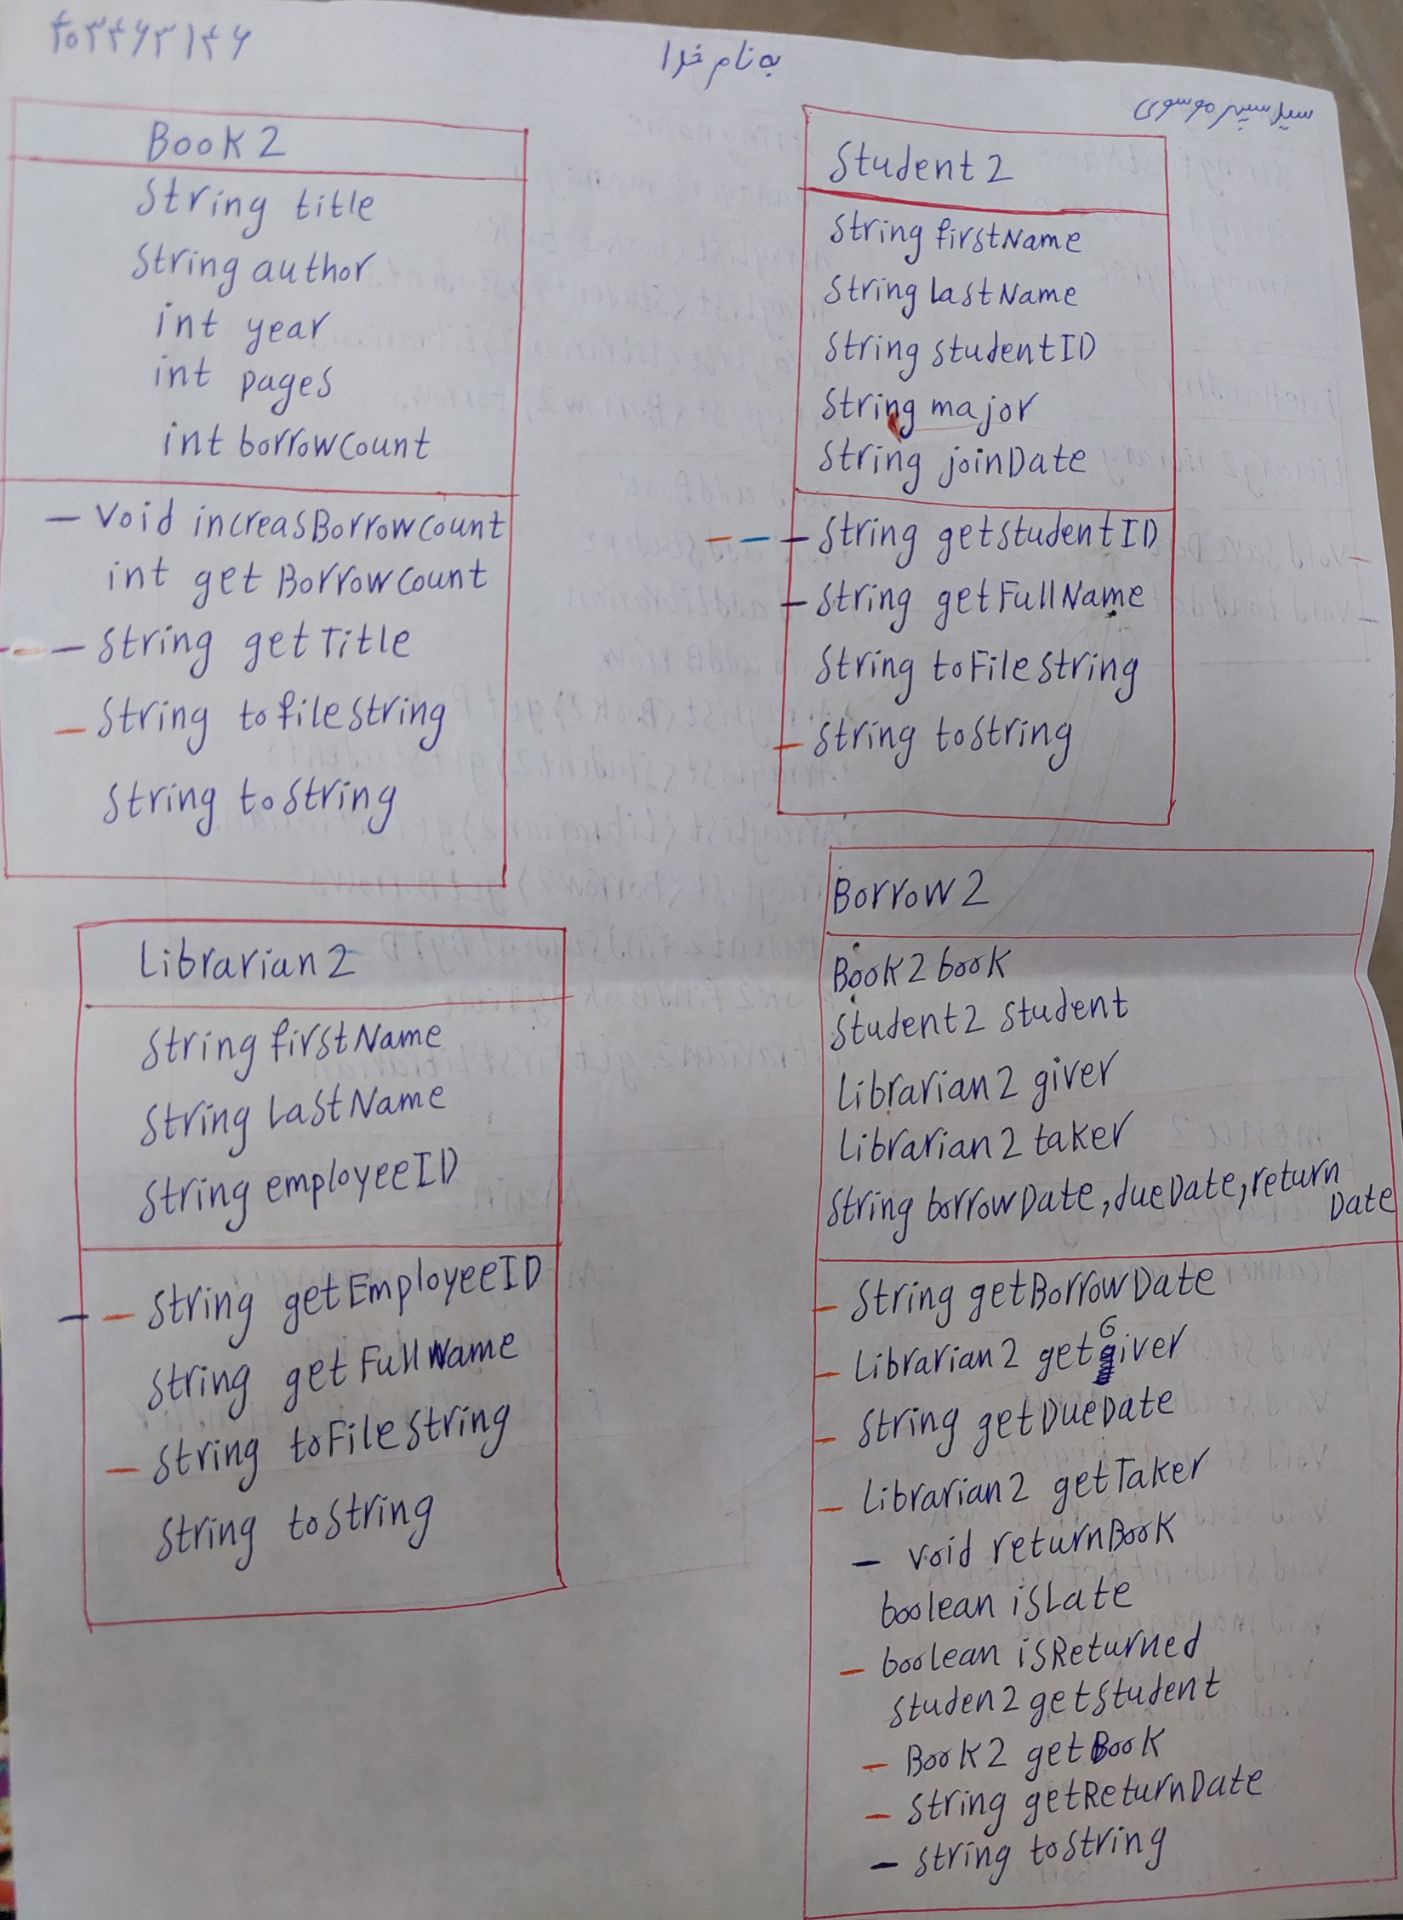 ۴۰۳۴۶۳۱۴۶
به نام خدا
سید سپهر موسوی
Book 2
String title
String author
int year
int pages
int borrowCount
— Void increasBorrowCount
int getBorrowCount
— — — String getTitle
— String tofileString
String toString
Student 2
String firstName
String LastName
String studentID
String major
String joinDate
— — — String getStudentID
— String getFullName
String toFileString
— String toString
Librarian 2
String firstName
String LastName
String employeeID
— — String getEmployeeID
String getFullName
— String toFileString
String toString
Borrow 2
Book 2 book
Student 2 student
Librarian 2 giver
Librarian 2 taker
String borrowDate, dueDate, return
Date
— String getBorrowDate
— Librarian 2 getGiver
— String getDueDate
— Librarian 2 getTaker
— void returnBook
boolean isLate
— boolean isReturned
Studen2 getStudent
— Book 2 getBook
— String getReturnDate
— String toString